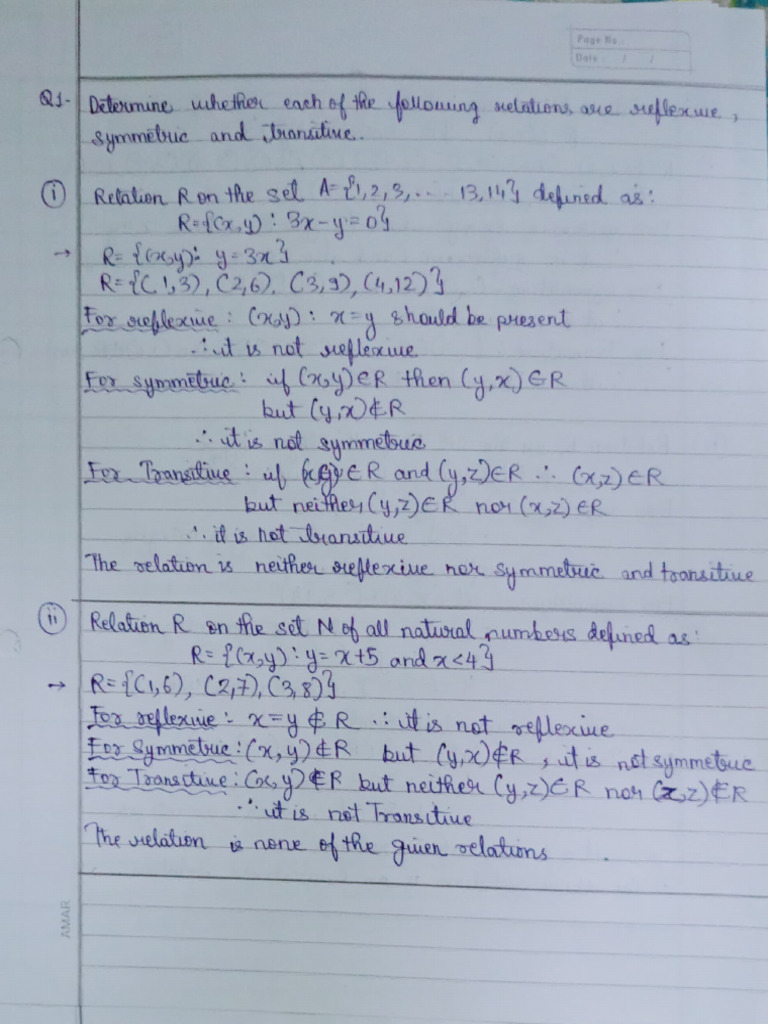 Page No.:
Date: / /
Q1- Determine whether each of the following relations are reflexive,
symmetric and transitive.
(i) Relation R on the set A={1,2,3,... 13,14} defined as:
R={(x,y) : 3x-y=0}
→ R= {(x,y): y=3x}
R={(1,3), (2,6), (3,9), (4,12)}
For reflexive : (x,y) : x=y should be present
∴ it is not reflexive
For symmetric : if (x,y)∈R then (y,x)∈R
but (y,x)∉R
∴ it is not symmetric
For Transitive : if (x,y)∈R and (y,z)∈R ∴ (x,z)∈R
but neither (y,z)∈R nor (x,z)∈R
∴ it is not transitive
The relation is neither reflexive nor symmetric and transitive
(ii) Relation R on the set N of all natural numbers defined as:
R= {(x,y) : y= x+5 and x<4}
→ R= {(1,6), (2,7), (3,8)}
For reflexive : x=y ∉ R ∴ it is not reflexive
For Symmetric : (x,y)∉R but (y,x)∉R , it is not symmetric
For Transitive : (x,y)∉R but neither (y,z)∈R nor (x,z)∉R
∴ it is not Transitive
The relation is none of the given relations .
AMAR